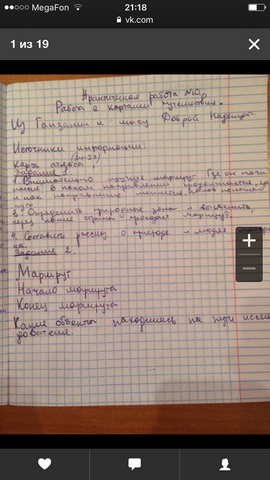 MegaFon
21:18
vk.com
1 из 19
Практическая работа №10
Работа с картами Путешествия.
Из Танзании к мысу Доброй Надежды.
Источники информации:
Карта атласа
Задание 1
1. Внимательно изучите маршрут. Где он
в каком направлении
и как направление
пути
природные зоны и выяснить,
через какие страны проходил маршрут.
4. Составить рассказ о природе и людях
Задание 2.
Маршрут
Начало маршрута
Конец маршрута
Какие объекты находились на пути иссле
дователя.